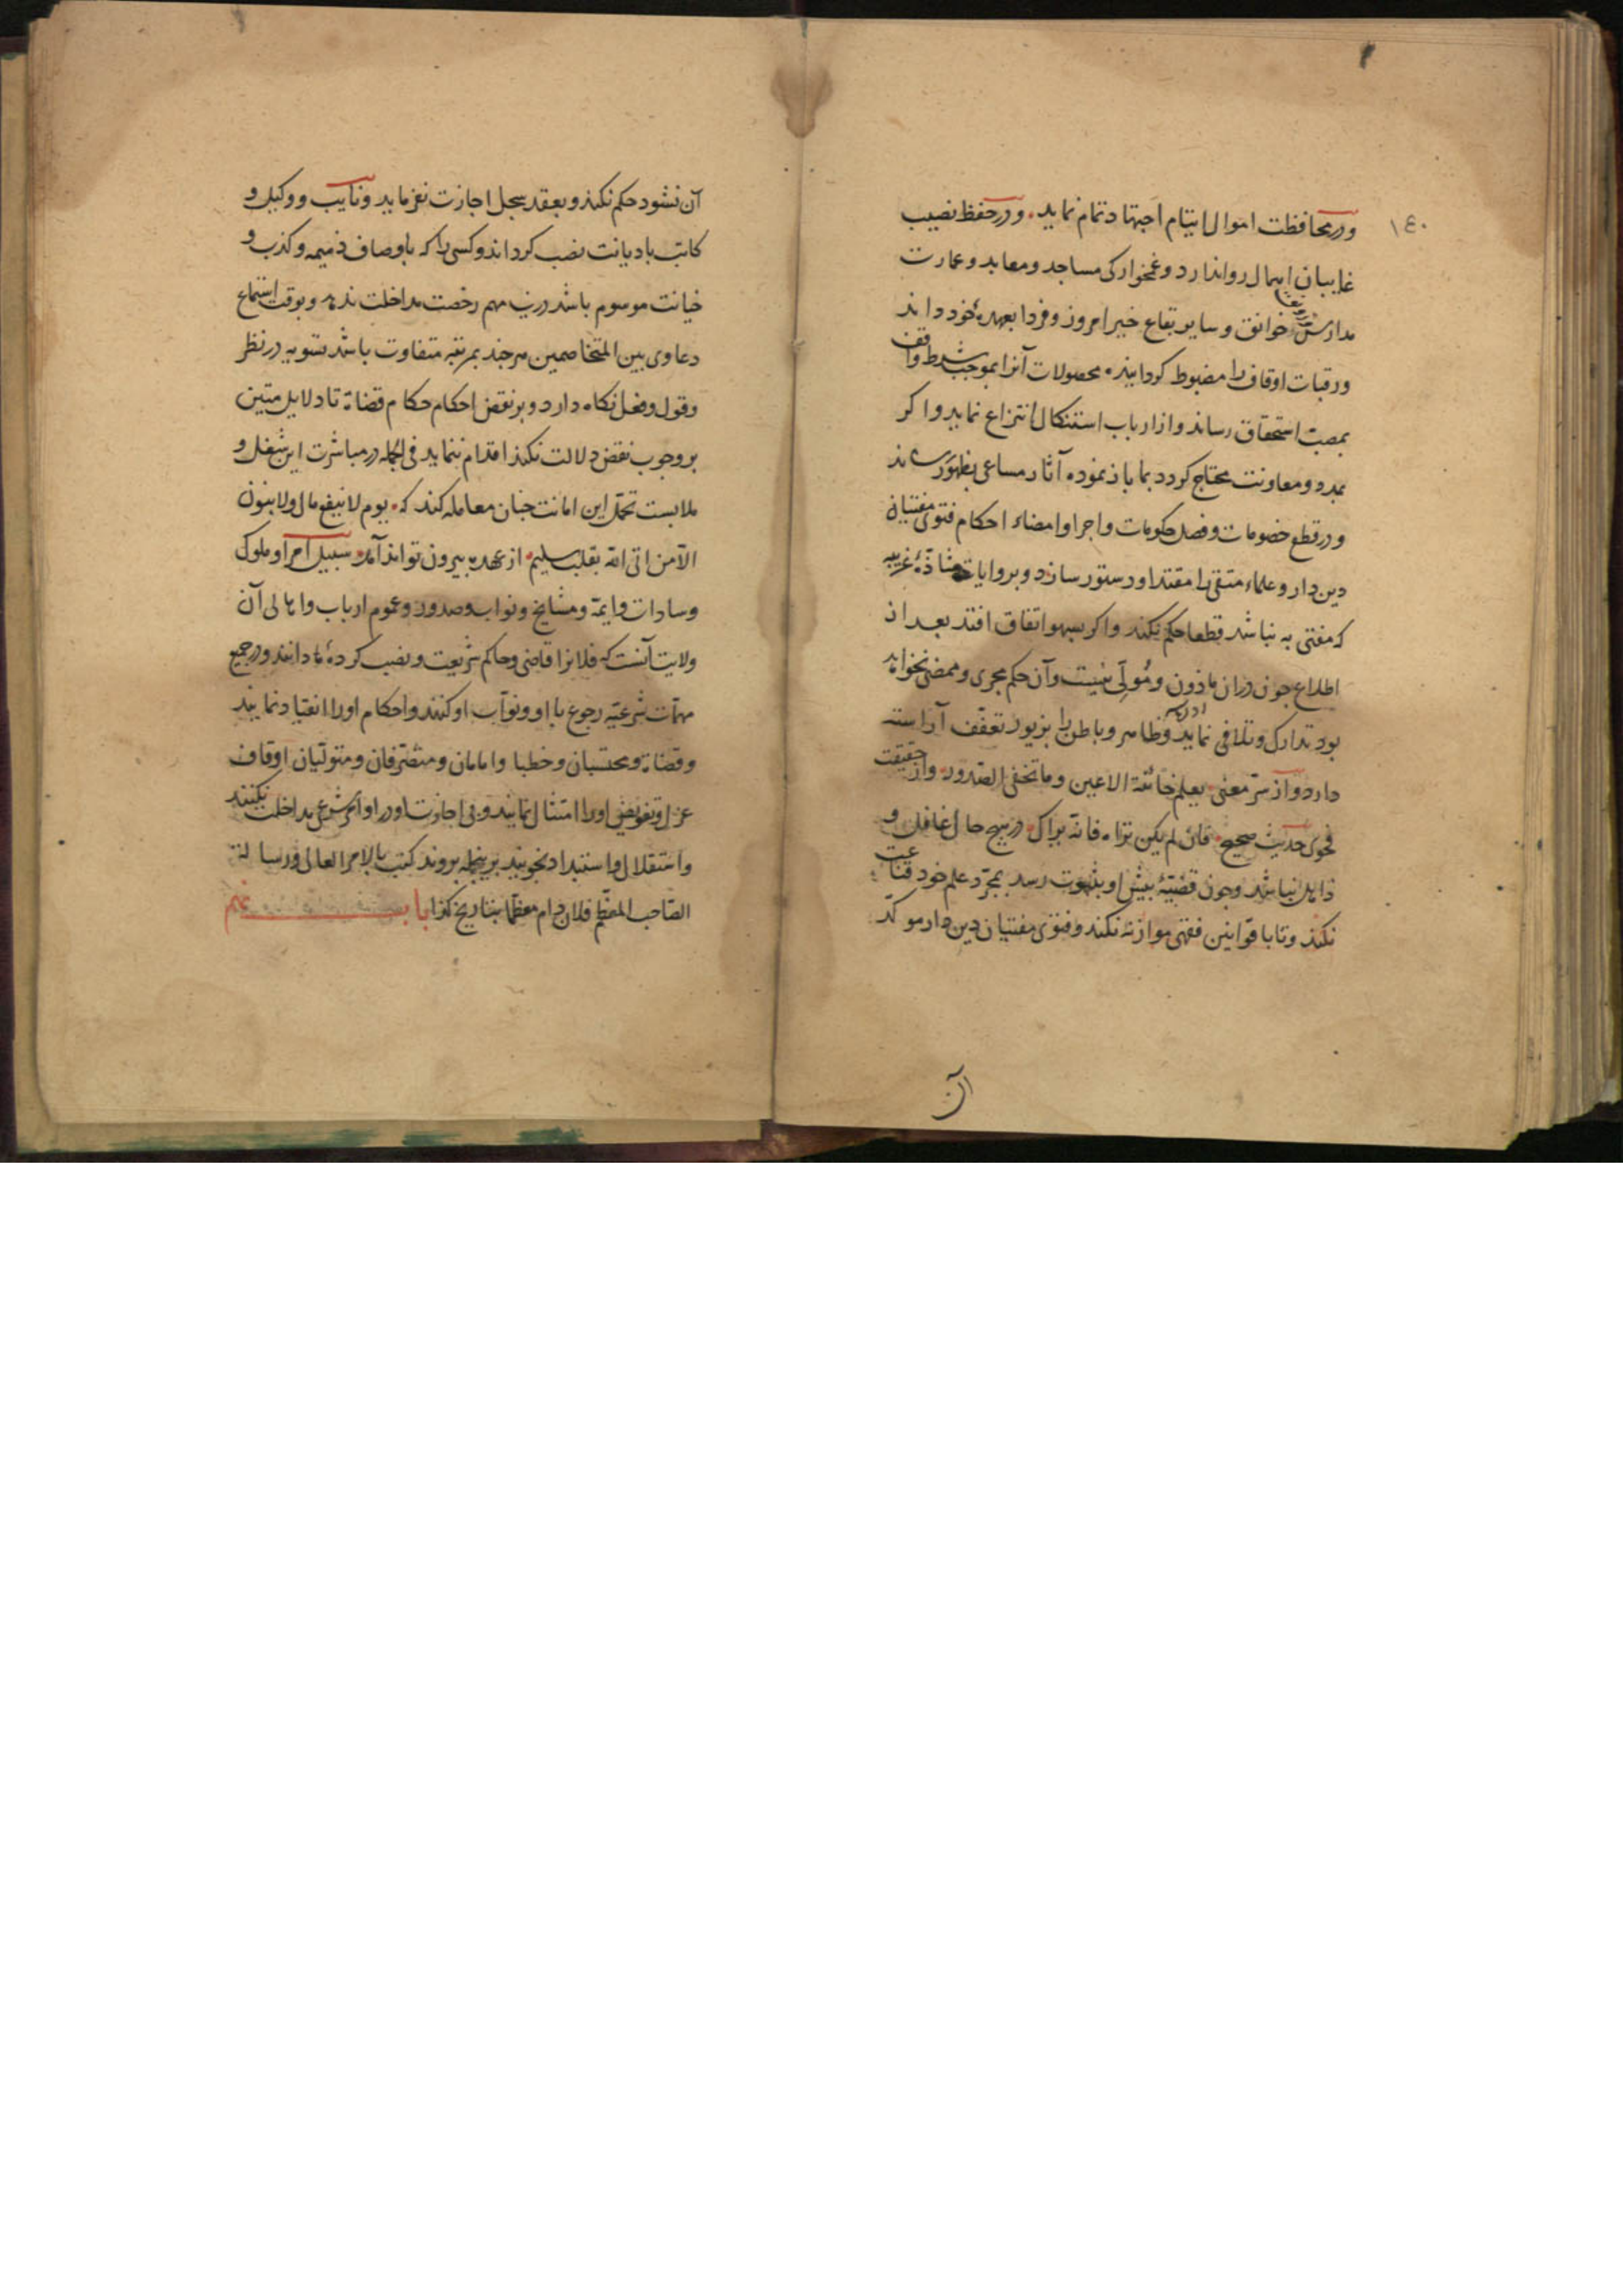 ١٤٠
و در محافظت اموال ایتام اجتهاد تمام نماید و در حفظ نصیب
غایبان اهمال روا ندارد و غمخوارکی مساجد و معابد و عمارت
مدارس و خوانق و سایر بقاع خیر امروز و فردا بعهدهٔ خود داند
و رقبات اوقاف را مضبوط کرداند محصولات آنرا بموجب شرط واقف
بمصب استحقاق رساند و از ارباب استنکال انتزاع نماید و اکر
بمدد و معاونت محتاج کردد بما باز نموده آثار مساعی بظهور رساند
و در قطع خصومات و فصل حکومات و اجرا و امضاء احکام فتوی مفتیان
دین دار و علماء متقی را مقتدا و دستور سازد و بروایات شاذهٔ غریبه
که مفتی به نباشد قطعا حکم نکند و اکر بسهو اتفاق افتد بعد از
اطلاع جون دران ماذون و مُولّی نیست و آن حکم مجری و ممضی نخواهد
بود تدارک و تلافی نماید و ظاهر و باطن را بزیور تعفّف آراسته
دارد و از سرّ معنی یعلم خائنة الاعین و ما تخفی الصّدور و از حقیقت
فحوی حدیث صحیح فان لم یکن تراه فانه یراک در هیچ حال غافل و
ذاهل نباشد و جون قضیّهٔ بیش او بثبوت رسد بمجرّد علم خود قناعت
نکند و تا با قوانین فقهی موازنه نکند و فتوی مفتیان دین دار موکّد
آن
آن نشود حکم نکند و بعقد سجل اجازت نفرماید و نایب و وکیل و
کاتب با دیانت نصب کرداند و کسی را که باوصاف ذمیمه و کذب و
خیانت موسوم باشد درین مهم رخصت مداخلت ندهد و بوقت استماع
دعاوی بین المتخاصمین هر جند بمرتبه متفاوت باشد تسویه در نظر
و قول و فعل نکاه دارد و بر نقض احکام حکام قضاة تا دلایل متین
بر وجوب نقض دلالت نکند اقدام ننماید فی الجمله در مباشرت این شغل و
ملابست تحمّل این امانت جنان معامله کند که یوم لا ینفع مال ولا بنون
الّا من اتی الله بقلب سلیم از عهده بیرون تواند آمد سبیل امرا و ملوک
و سادات و ایمّه و مشایخ و نواب و صدور و عموم ارباب و اهالی آن
ولایت آنست که فلانرا قاضی و حاکم شریعت و نصب کردهٔ ما دانند و در جمیع
مهمّات شرعیّه رجوع با او و نوّاب او کنند و احکام او را انقیاد نمایند
و قضاة و محتسبان و خطبا و امامان و متصّرفان و متولّیان اوقاف
عزل و تفویض او را امتثال نمایند و بی اجازت او در اوامر شرعی مداخلت نکنند
و استقلال و استبداد نجویند برینجمله بروند کتب بالامر العالی و رسالة
الصّاحب المعظّم فلان دام معظّما بتاریخ کذا باب نهم